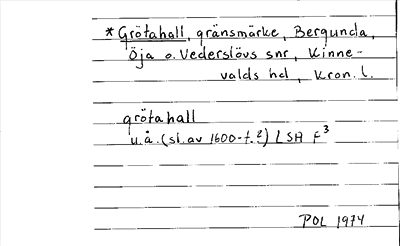 * Grötahall, gränsmärke, Bergunda,
Öja o. Vederslövs snr, Kinne-
valds hd, Kron. l.
grötahall
u.å. (sl. av 1600-t.?) LSA F³
POL 1974